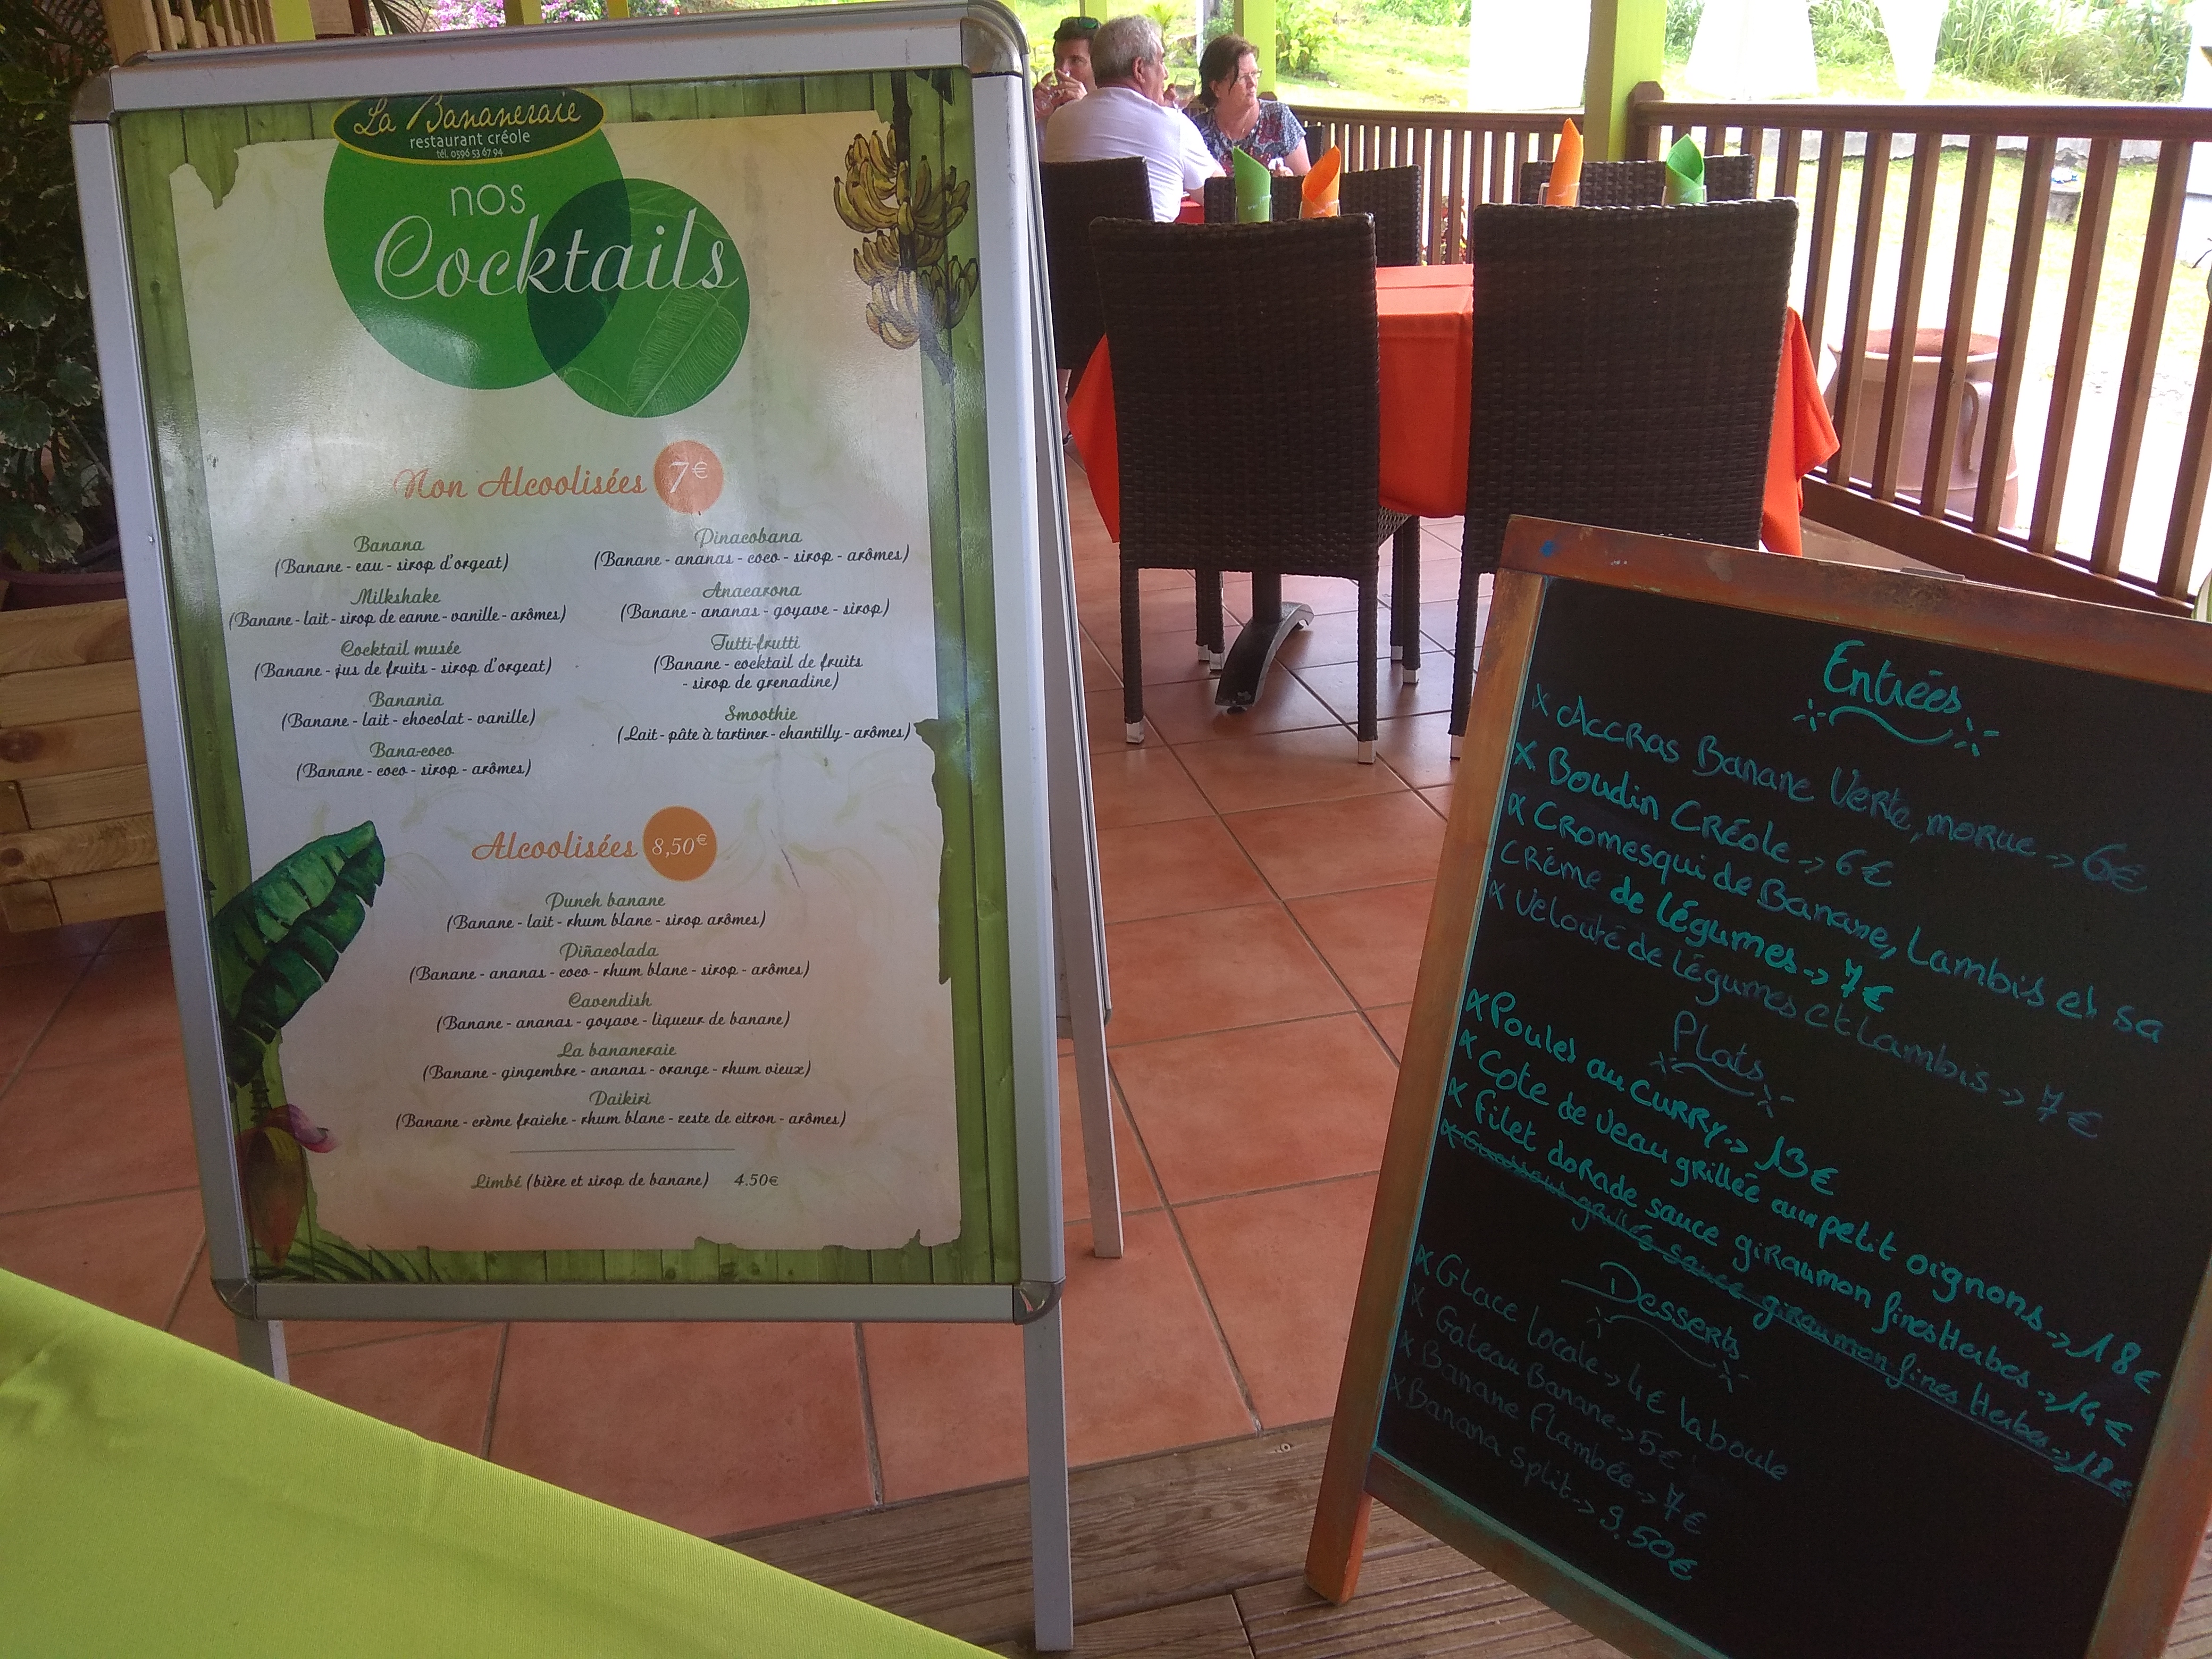 La Bananeraie
restaurant créole
tél. 0596 53 67 94
nos
Cocktails
Non Alcoolisées 7€
Banana
(Banane - eau - sirop d'orgeat)
Milkshake
(Banane - lait - sirop de canne - vanille - arômes)
Cocktail musée
(Banane - jus de fruits - sirop d'orgeat)
Banania
(Banane - lait - chocolat - vanille)
Bana-coco
(Banane - coco - sirop - arômes)
Pinacobana
(Banane - ananas - coco - sirop - arômes)
Anacarona
(Banane - ananas - goyave - sirop)
Tutti-frutti
(Banane - cocktail de fruits
- sirop de grenadine)
Smoothie
(Lait - pâte à tartiner - chantilly - arômes)
Alcoolisées 8,50€
Punch banane
(Banane - lait - rhum blanc - sirop arômes)
Piñacolada
(Banane - ananas - coco - rhum blanc - sirop - arômes)
Cavendish
(Banane - ananas - goyave - liqueur de banane)
La bananeraie
(Banane - gingembre - ananas - orange - rhum vieux)
Daikiri
(Banane - crème fraiche - rhum blanc - zeste de citron - arômes)
Limbé (bière et sirop de banane) 4.50€
Entrées
x Accras Banane Verte, morue -> 6€
x Boudin Créole -> 6€
x Cromesqui de Banane, Lambis et sa
crème de légumes -> 7€
x Velouté de légumes et Lambis -> 7€
Plats
x Poulet au curry -> 13€
x Cote de veau grillée aux petit oignons -> 18€
x Filet dorade sauce giraumon fines Herbes -> 14€
x grillés sauce giraumon fines Herbes -> 18€
Desserts
x Glace locale -> 4€ la boule
x Gateau Banane -> 5€
x Banane flambée -> 7€
x Banana split -> 9.50€